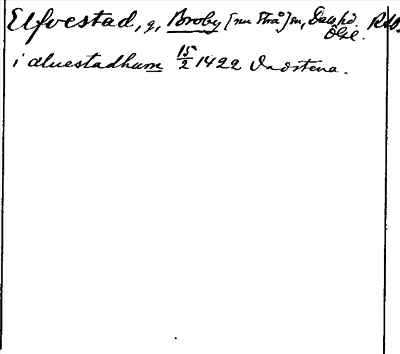 Elfvestad, g, Broby [nu Strå] sn, Dals hd. Ögl. RAP.
i aluestadhum 15/2 1422 Vadstena.